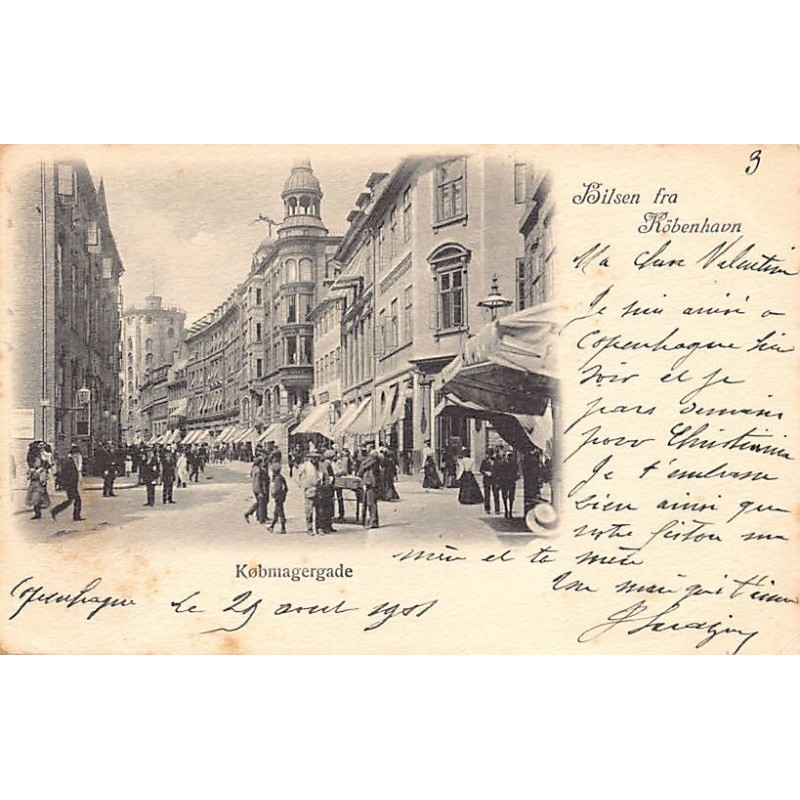 3
Hilsen fra
Köbenhavn
Ma chère Valentine
Je suis arrivé a
Copenhague hier
soir et je
pars demain
pour Christiania
Je t'embrasse
bien ainsi que
notre fiston ma
mère et ta mère
Ton mari qui t'aime
Købmagergade
Copenhague le 29 aout 1901